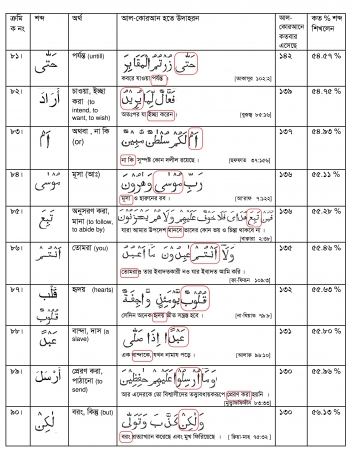 ক্রমিক নং শব্দ অর্থ আল-কোরআন হতে উদাহরন আল-কোরআনে কতবার এসেছে কত % শব্দ শিখলেন
৮১। حَتّٰى পর্যন্ত (untill) حَتّٰى زُرْتُمُ الْمَقَابِرَ ১৪২ ৫৪.৫৭ %
কবরে যাওয়া পর্যন্ত । [তাকাসুর ১০২:২]
৮২। أَرَادَ চাওয়া, ইচ্ছা করা (to intend, to want, to wish) فَعَّالٌ لِّمَا يُرِيدُ ১৩৯ ৫৪.৭৫ %
অতঃপর যা ইচ্ছা করেন । [বুরুজ ৮৫:১৬]
৮৩। أَمْ অথবা , না কি (or) أَمْ لَكُمْ سُلْطٰنٌ مُّبِيْنٌ ১৩৭ ৫৪.৯৩ %
না কি সুস্পষ্ট কোন দলীল রয়েছে । [ছফফাত ৩৭:১৫৬]
৮৪। مُوْسٰى মূসা (আঃ) رَبِّ مُوْسٰى وَهٰرُوْنَ ১৩৬ ৫৫.১১ %
মূসা ও হারুনের রব । [আরাফ ৭:১২২]
৮৫। تَبِعَ অনুসরণ করা, মানা (to follow, to abide by) فَمَنْ تَبِعَ هُدَايَ فَلَا خَوْفٌ عَلَيْهِمْ وَلَا هُمْ يَحْزَنُوْنَ ১৩৬ ৫৫.২৮ %
যারা আমার উপদেশ মানবে তাদের কোন ভয় ও চিন্তা থাকবে না ।
[বাকারা ২:৩৮]
৮৬। أَنْتُمْ তোমরা (you) وَلَا أَنْتُمْ عٰبِدُوْنَ مَا أَعْبُدُ ১৩৫ ৫৫.৪৬ %
তোমরাও তার ইবাদতকারী নও যার ইবাদত আমি করি ।
[কাফিরুন ১০৯:৩]
৮৭। قَلْبٌ قُلُوْبٌ হৃদয় (hearts) قُلُوْبٌ يَّوْمَئِذٍ وَّاجِفَةٌ ১৩২ ৫৫.৬৩ %
সেদিন অনেক হৃদয় ভীত সন্ত্রস্ত হবে । [নাযিয়াত ৭৯:৮]
৮৮। عَبْدٌ বান্দা, দাস (a slave) عَبْدًا إِذَا صَلّٰى ১৩১ ৫৫.৮০ %
এক বান্দাকে যখন নামায পড়ে । [আলাক ৯৬:১০]
৮৯। أَرْسَلَ প্রেরণ করা, পাঠানো (to send) وَمَا أُرْسِلُوْا عَلَيْهِمْ حٰفِظِيْنَ ১৩০ ৫৫.৯৬ %
আর এদেরকে তো বিশ্বাসীদের তত্ত্বাবধায়করূপে প্রেরণ করা হয়নি ।
[মুতাফফিফীন ৮৩:৩৩]
৯০। لٰكِنْ বরং, কিন্তু (but) وَلٰكِنْ كَذَّبَ وَتَوَلّٰى ১৩০ ৫৬.১৩ %
বরং প্রত্যাখ্যান করেছে এবং মুখ ফিরিয়েছে । [ক্বিয়ামাহ ৭৫:৩২]